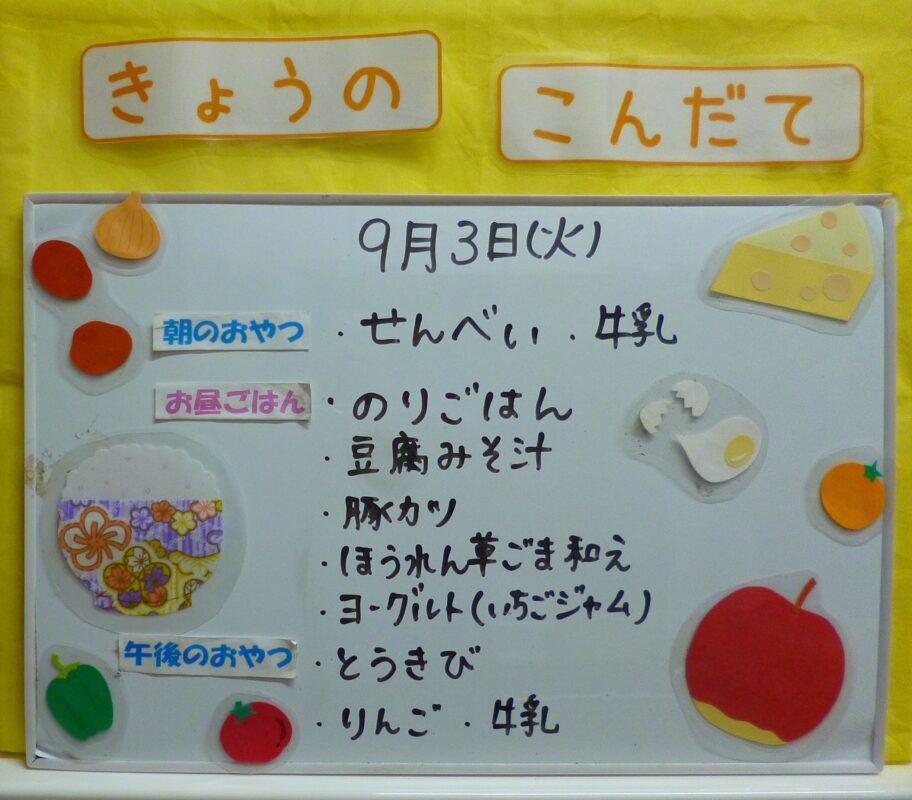 きょうの こんだて
9月3日(火)
朝のおやつ ・せんべい ・牛乳
お昼ごはん ・のりごはん
・豆腐みそ汁
・豚カツ
・ほうれん草ごま和え
・ヨーグルト(いちごジャム)
午後のおやつ ・とうきび
・りんご ・牛乳